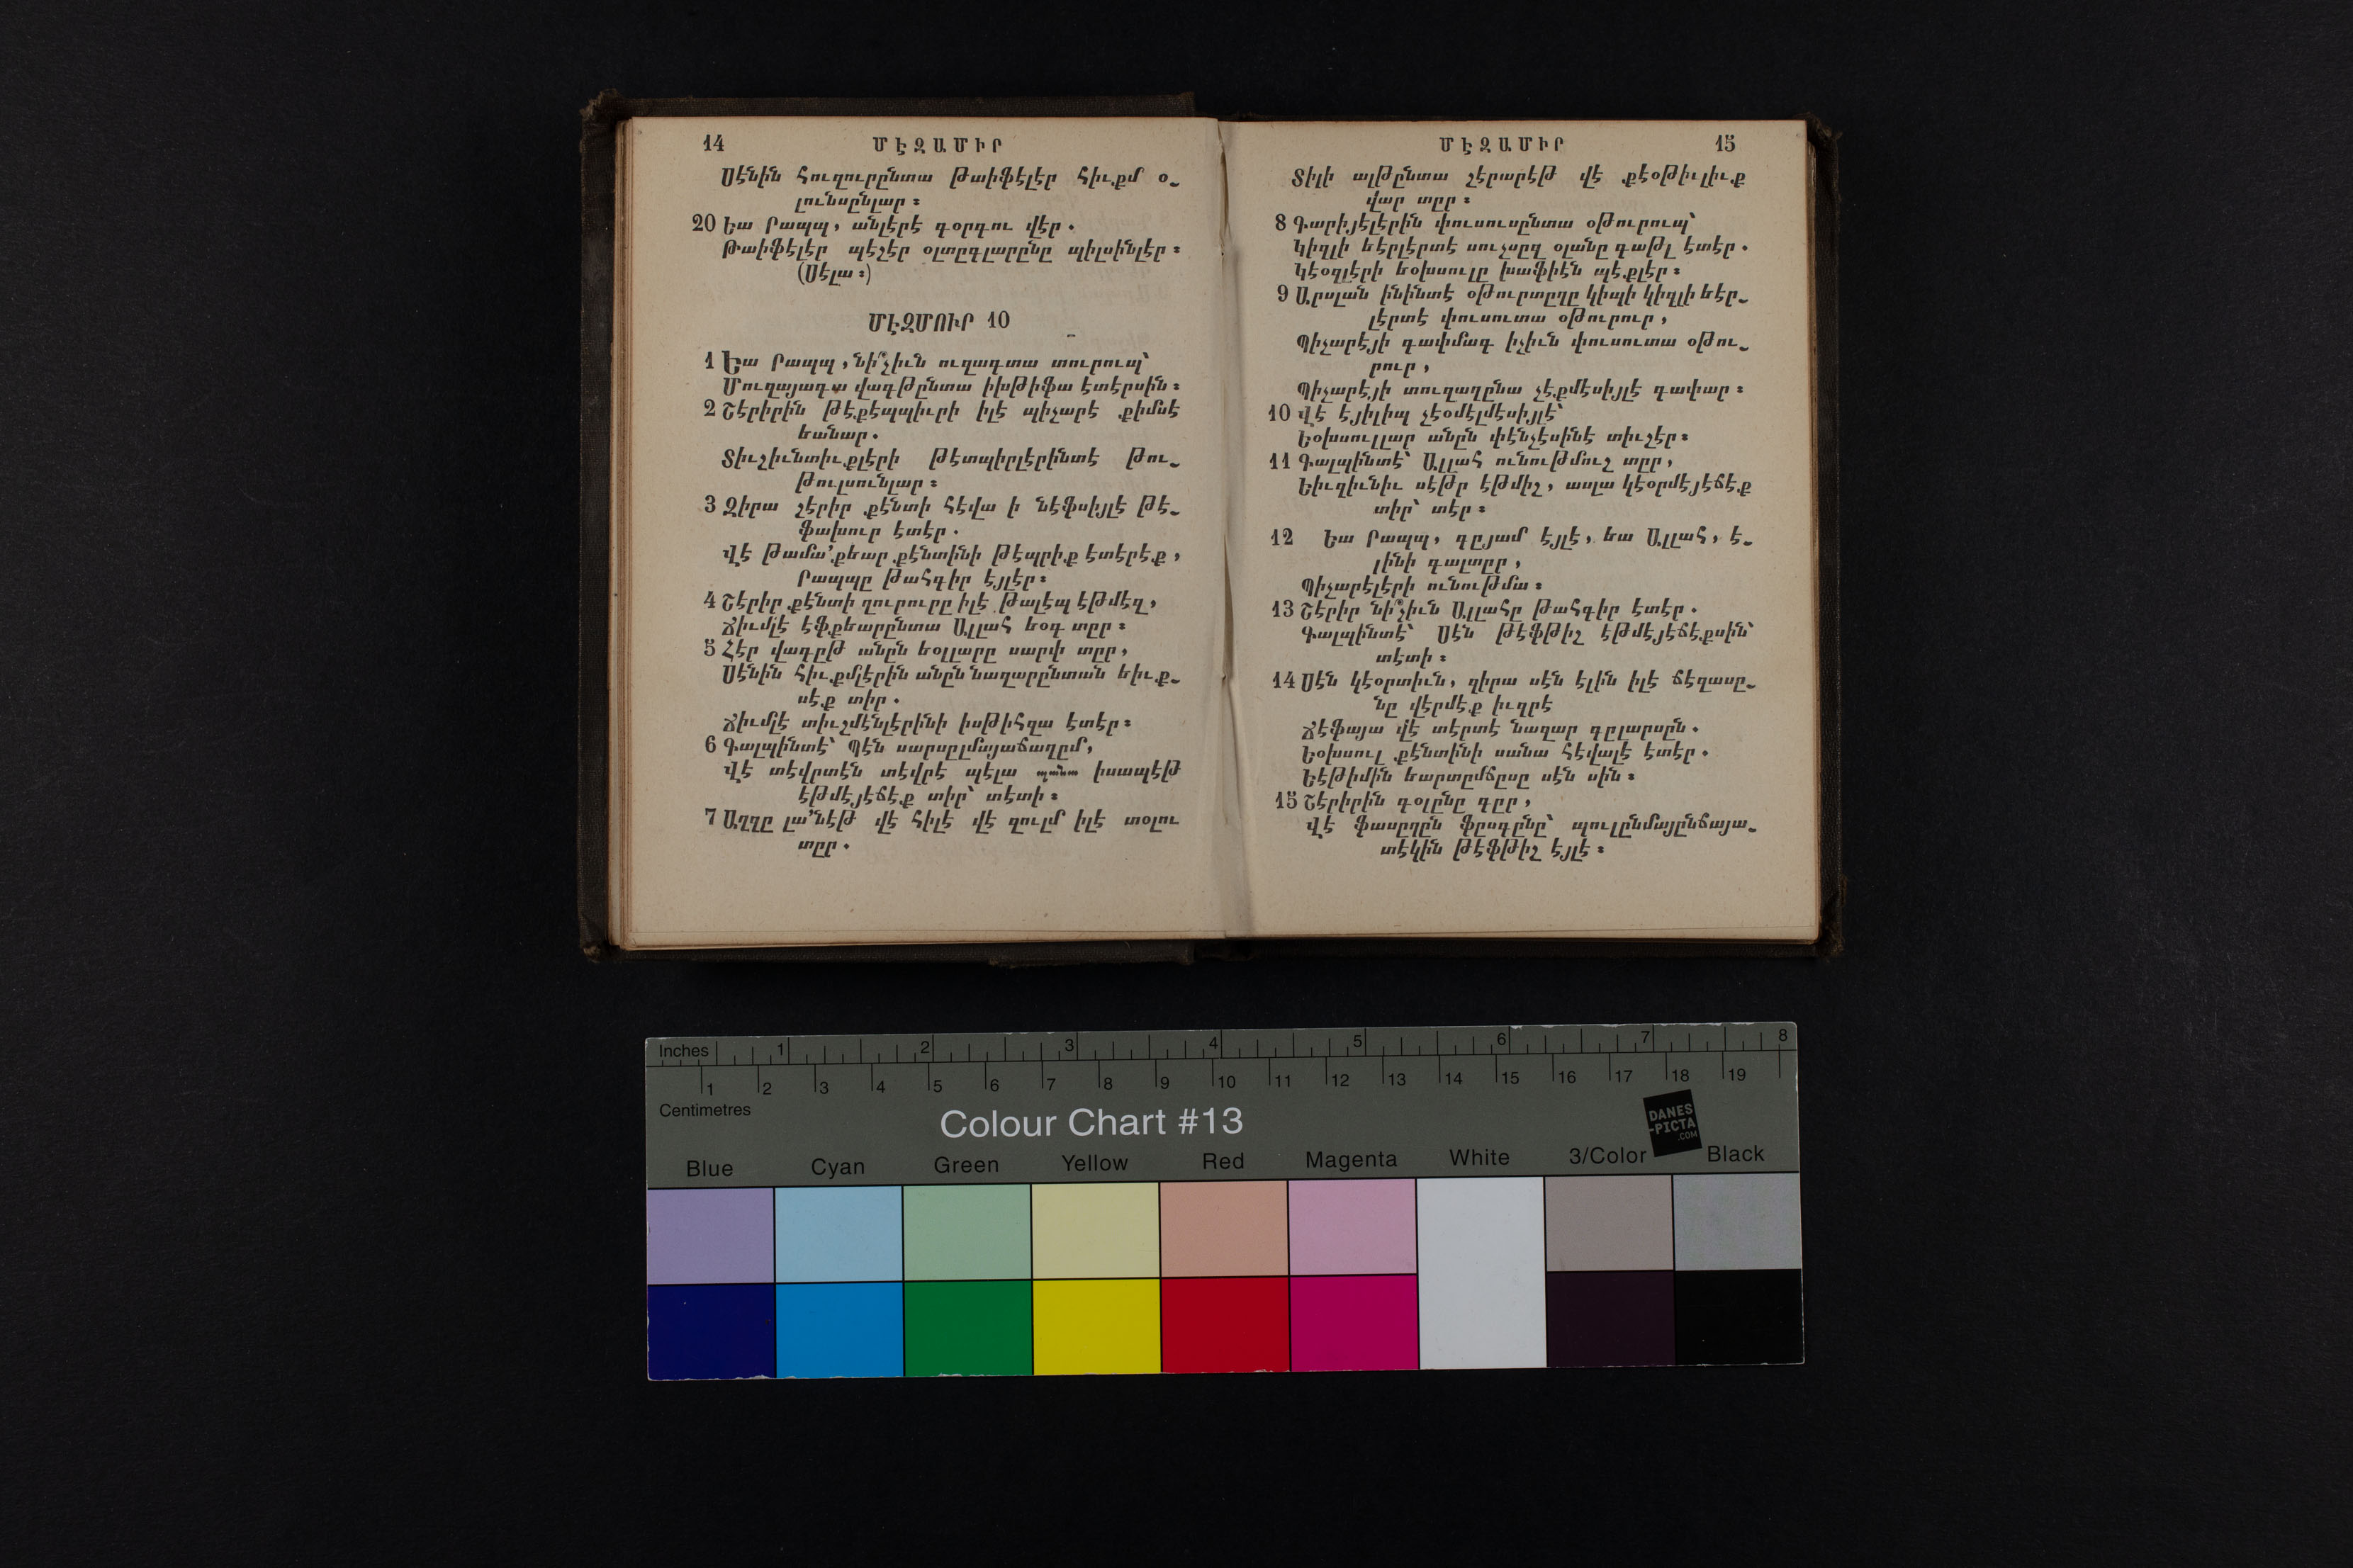 14 ՄԷԶԱՄԻՐ
Սէնին հուզուրընտա թաիֆէլէր հիւքմ օ֊
լունսընլար ։
20 Եա Րապպ, անլէրէ գօրգու վէր .
Թաիֆէլէր պէշէր օլտըգլարընը պիլսինլէր ։
(Սէլա ։)
ՄԷԶՄՈՒՐ 10
1 Եա Րապպ, նի՞չիւն ուզագտա տուրուպ՝
Մուզայագա վագթընտա իխթիֆա էտէրսին ։
2 Շէրիրին թէքէպպիւրի իլէ պիչարէ քիմսէ
եանար .
Տիւշիւնտիւքլէրի թէտպիրլէրինտէ թու֊
թուլսունլար ։
3 Զիրա շէրիր քէնտի հէվա ի նէֆսիյլէ թէ֊
ֆախուր էտէր .
Վէ թամա՚քեար քէնտինի թէպրիք էտէրէք,
Րապպը թահգիր էյլէր ։
4 Շէրիր քէնտի ղուրուրը իլէ թալէպ էթմէզ,
Ճիւմլէ էֆքեարընտա Ալլահ եօգ տըր ։
5 Հէր վագըթ անըն եօլլարը սարփ տըր,
Սէնին հիւքմլէրին անըն նազարընտան եիւք֊
սէք տիր .
Ճիւմլէ տիւշմէնլէրինի իսթիհզա էտէր ։
6 Գալպինտէ՝ Պէն սարսըլմայաճաղըմ,
Վէ տէվրտէն տէվրէ պէլա պանա իսապէթ
էթմէյէճէք տիր՝ տէտի ։
7 Աղզը լա՚նէթ վէ հիլէ վէ զուլմ իլէ տօլու
տըր .
ՄԷԶԱՄԻՐ 15
Տիլի ալթընտա շէրարէթ վէ քէօթիւլիւք
վար տըր ։
8 Գարիյէլէրին փուսուսընտա օթուրուպ՝
Կիզլի եէրլէրտէ սուչսըզ օլանը գաթլ էտէր .
Կէօզլէրի եօխսուլը խաֆիէն պէքլէր ։
9 Արսլան ինինտէ օթուրտըղը կիպի կիզլի եէր֊
լէրտէ փուսուտա օթուրուր,
Պիչարէյի գափմագ իչիւն փուսուտա օթու֊
րուր,
Պիչարէյի տուզաղընա չէքմէսիյլէ գափար ։
10 Վէ էյիլիպ չէօմէլմէսիյլէ՝
Եօխսուլլար անըն փէնչէսինէ տիւշէր ։
11 Գալպինտէ՝ Ալլահ ունութմուշ տըր,
Եիւզիւնիւ սէթր էթմիշ, ասլա կէօրմէյէճէք
տիր՝ տէր ։
12 Եա Րապպ, գըյամ էյլէ, եա Ալլահ, է֊
լինի գալտըր,
Պիչարէլէրի ունութմա ։
13 Շէրիր նի՞չիւն Ալլահը թահգիր էտէր .
Գալպինտէ՝ Սէն թէֆթիշ էթմէյէճէքսին՝
տէտի ։
14 Սէն կէօրտիւն, զիրա սէն էլին իլէ ճէզասը֊
նը վէրմէք իւզրէ
Ճէֆայա վէ տէրտէ նազար գըլարսըն .
Եօխսուլ քէնտինի սանա հէվալէ էտէր .
Եէթիմին եարտըմճըսը սէն սին ։
15 Շէրիրին գօլընը գըր,
Վէ ֆասըղըն ֆըսգընը՝ պուլընմայընճայա֊
տէկին թէֆթիշ էյլէ ։
Inches 1 2 3 4 5 6 7 8
1 2 3 4 5 6 7 8 9 10 11 12 13 14 15 16 17 18 19
Centimetres
Colour Chart #13
DANES
-PICTA
.COM
Blue Cyan Green Yellow Red Magenta White 3/Color Black